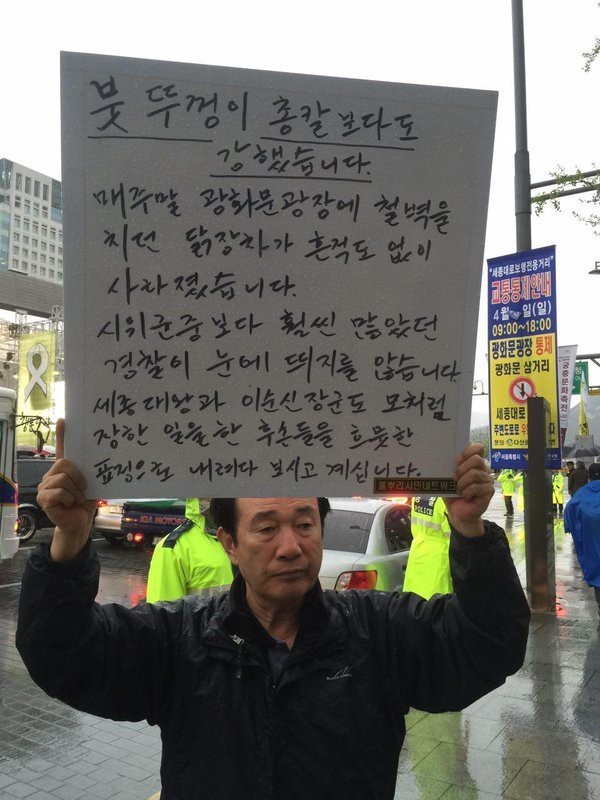 붓 뚜껑이 총칼보다도
강했습니다.
매주말 광화문광장에 철벽을
치던 닭장차가 흔적도 없이
사라졌습니다.
시위군중보다 훨씬 많았던
경찰이 눈에 띄지를 않습니다.
세종대왕과 이순신장군도 모처럼
장한 일을한 후손들을 흐뭇한
표정으로 내려다 보시고 계십니다.
풀뿌리시민네트워크
"세종대로보행전용거리"
교통통제안내
4월 일(일)
09:00~18:00
광화문광장 통제
광화문 삼거리
세종대로
주변도로로
서울특별시
궁중문화축전
KIA MOTORS
POLICE